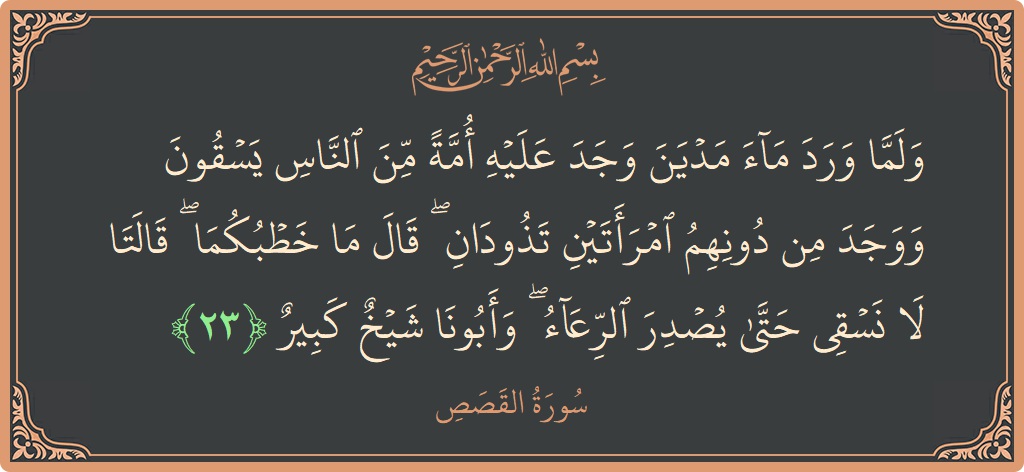 بِسْمِ اللَّهِ الرَّحْمَٰنِ الرَّحِيمِ
وَلَمَّا وَرَدَ مَآءَ مَدْيَنَ وَجَدَ عَلَيْهِ أُمَّةً مِّنَ ٱلنَّاسِ يَسْقُونَ
وَوَجَدَ مِن دُونِهِمُ ٱمْرَأَتَيْنِ تَذُودَانِ ۖ قَالَ مَا خَطْبُكُمَا ۖ قَالَتَا
لَا نَسْقِى حَتَّىٰ يُصْدِرَ ٱلرِّعَآءُ ۖ وَأَبُونَا شَيْخٌ كَبِيرٌ ﴿٢٣﴾
سُورَةُ القَصَصِ